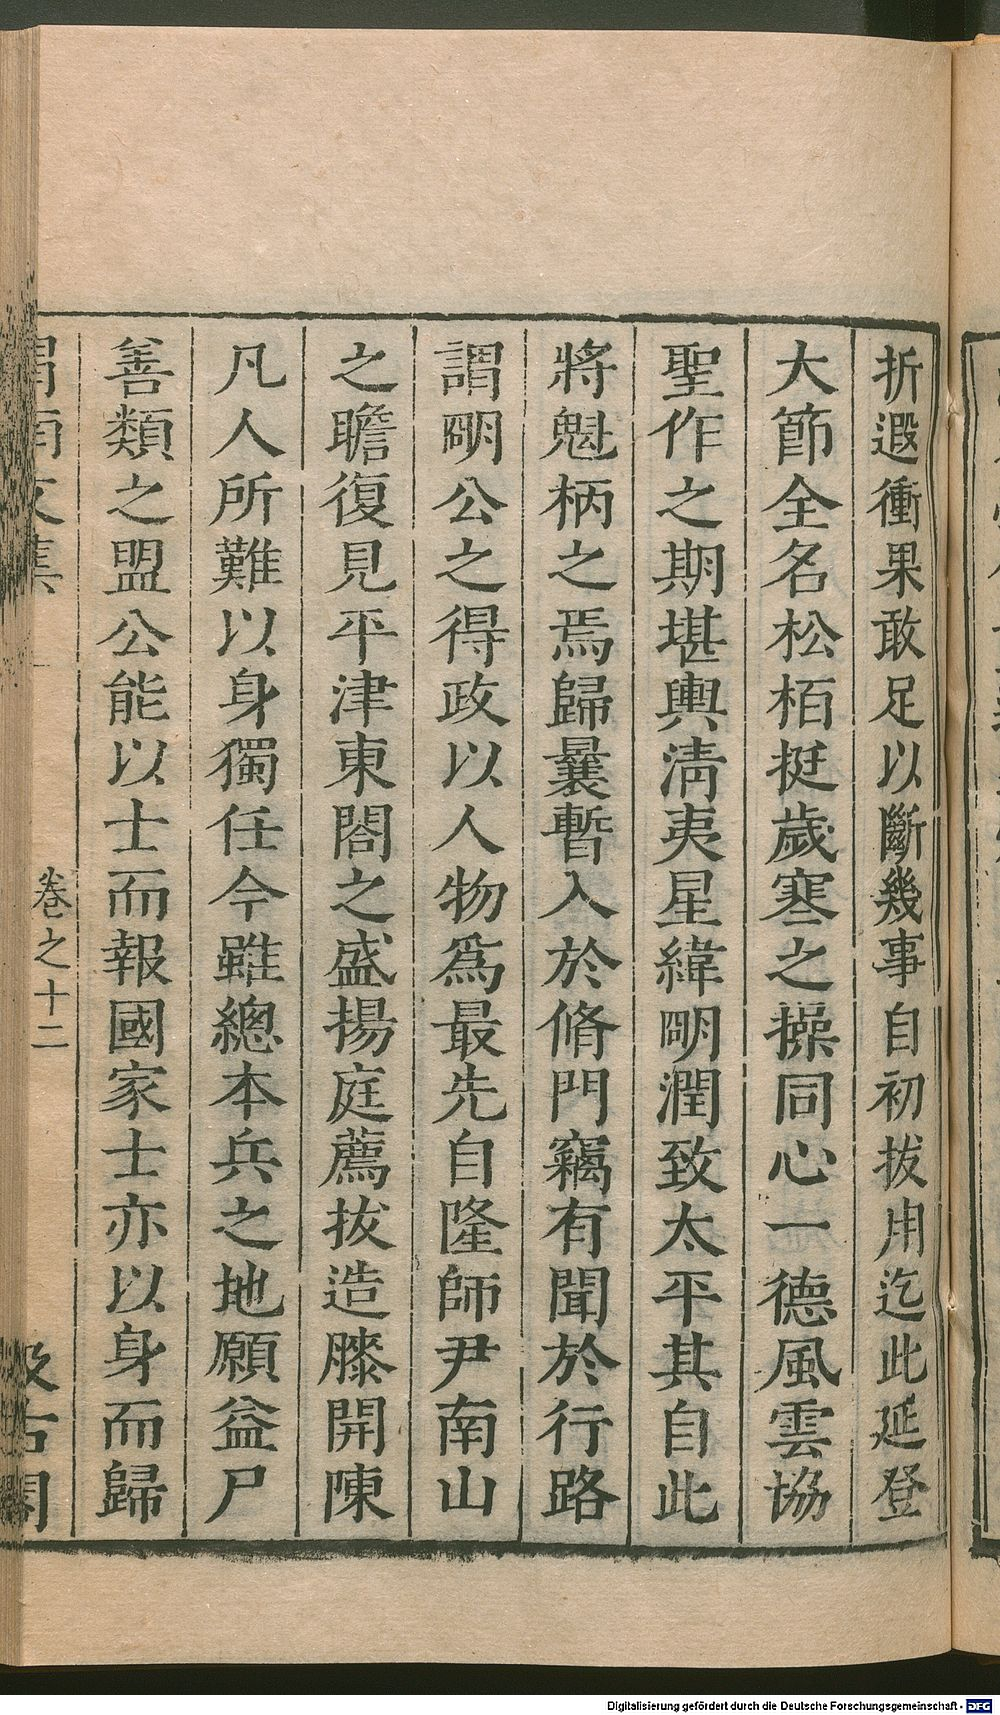 折遐衝果敢足以斷幾事自初拔用迄此延登
大節全名松栢挺歲寒之操同心一德風雲協
聖作之期堪輿淸夷星緯明潤致太平其自此
將魁柄之焉歸曩暫入於脩門竊有聞於行路
謂明公之得政以人物爲最先自隆師尹南山
之瞻復見平津東閤之盛揚庭薦拔造膝開陳
凡人所難以身獨任今雖總本兵之地願益尸
善類之盟公能以士而報國家士亦以身而歸
渭南文集 卷之十二 汲古閣
Digitalisierung gefördert durch die Deutsche Forschungsgemeinschaft - DFG